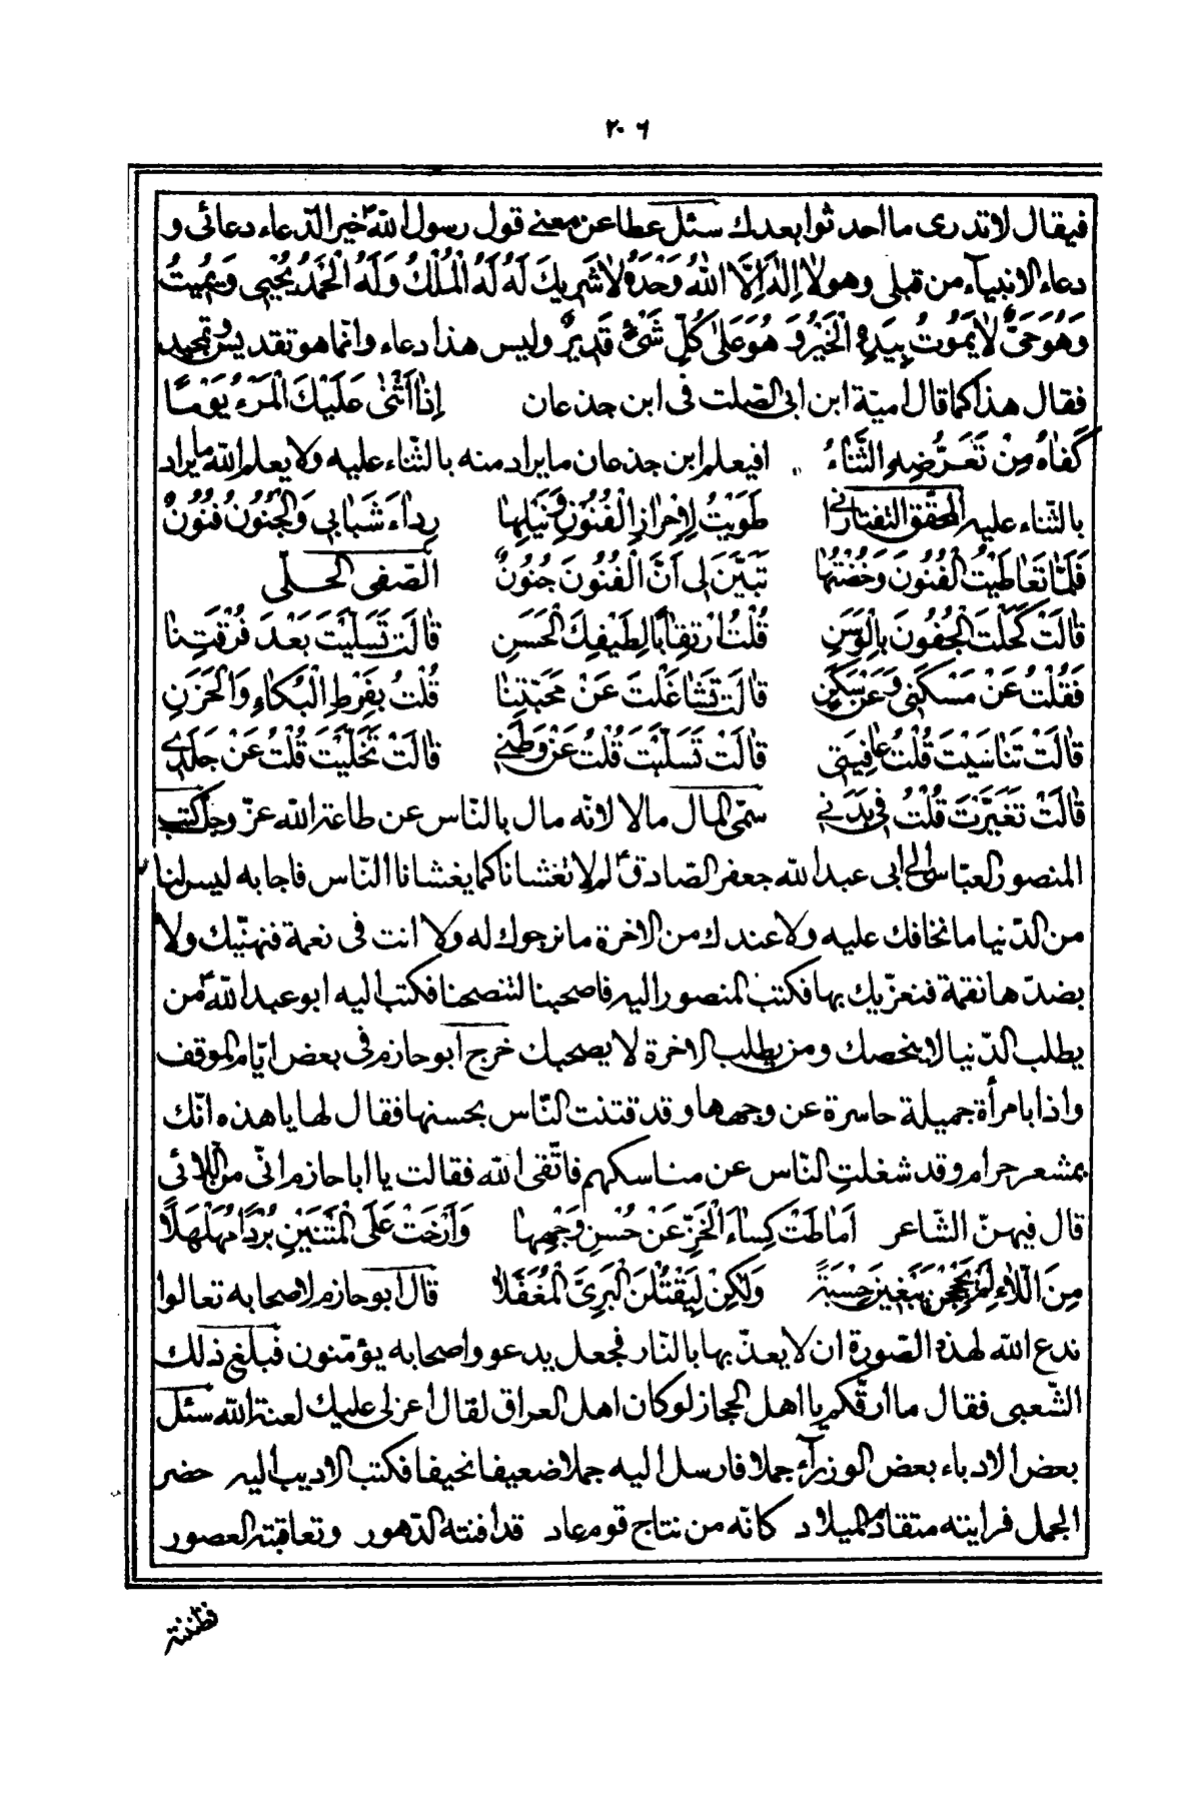 ٢٠٦
فيقال لا تدرى ما احدثوا بعدك سئل عطا عن معنى قول رسول اللّه ؐ خير الدّعاء دعائى و
دعاء الانبيآء من قبلى وهو لا اِلٰهَ اِلَّا اللّٰهُ وَحْدَهُ لا شَرِيكَ لَهُ لَهُ الْمُلْكُ وَلَهُ الْحَمْدُ يُحْيِى وَيُمِيتُ
وَهُوَ حَىٌّ لا يَمُوتُ بِيَدِهِ الْخَيْرُ وَ هُوَ عَلىٰ كُلِّ شَىْءٍ قَدِيرٌ وليس هذا دعاء وانّما هو تقديس وتمجيد
فقال هذا كما قال اميّة ابن ابى الصّلت فى ابن جذعان اِذا اَثْنىٰ عَلَيْكَ الْمَرْءُ يَوْمًا
كَفاهُ مِنْ تَعَرُّضِهِ الثَّناءُ افيعلم ابن جذعان ما يراد منه بالثّناء عليه ولا يعلم اللّه ما يراد
بالثّناء عليه المحقّق التفتازانى طَوَيْتُ لِاِحْرازِ الْفُنُونِ وَنَيْلِها رِداءَ شَبابِي وَالْجُنُونُ فُنُونٌ
فَلَمّا تَعاطَيْتُ الْفُنُونَ وَخُضْتُها تَبَيَّنَ لِى اَنَّ الْفُنُونَ جُنُونٌ الصّفى الحلّى
قالَتْ كَحَلْتَ الْجُفُونَ بِالْوَسَنِ قُلْتُ ارْتِقابًا لِطَيْفِكِ الْحَسَنِ قالَتْ تَسَلَّيْتَ بَعْدَ فُرْقَتِنا
فَقُلْتُ عَنْ مَسْكَنِى وَعَنْ سَكَنِ قالَتْ تَشاغَلْتَ عَنْ مَحَبَّتِنا قُلْتُ بِفَرْطِ الْبُكاءِ وَالْحَزَنِ
قالَتْ تَناسَيْتَ قُلْتُ عافِيَتِى قالَتْ تَسَلَّيْتَ قُلْتُ عَنْ وَطَنِي قالَتْ تَخَلَّيْتَ قُلْتُ عَنْ جَلَدِي
قالَتْ تَغَيَّرْتَ قُلْتُ فِى بَدَنِي سمّى المال مالا لانّه مال بالنّاس عن طاعة اللّه عزّ وجلّ كتب
المنصور العبّاسى الى ابى عبد اللّه جعفر الصّادق ؑ لم لا تغشانا كما يغشانا النّاس فاجابه ليس لنا
من الدّنيا ما نخافك عليه ولا عندك من الاخرة ما نرجوك له ولا انت فى نعمة فنهنّيك ولا
بضدّها نقمة فنعزّيك بها فكتب المنصور اليه فاصحبنا لتنصحنا فكتب اليه ابو عبد اللّه ؑ من
يطلب الدّنيا لا ينصحك ومن يطلب الاخرة لا يصحبك خرج ابو حازم فى بعض ايّام الموقف
واذا بامرأة جميلة حاسرة عن وجهها وقد فتنت النّاس بحسنها فقال لها يا هذه انّك
بمشعر حرام وقد شغلتِ النّاس عن مناسكهم فاتّقى اللّه فقالت يا ابا حازم انّى من اللّائى
قال فيهنّ الشّاعر اَماطَتْ كِساءَ الْخَزِّ عَنْ حُسْنِ وَجْهِها وَاَرْخَتْ عَلَى الْمَتْنَيْنِ بُرْدًا مُهَلْهَلًا
مِنَ اللّاءِ لَمْ يَحْجُجْنَ يَبْغِينَ حِسْبَةً وَلٰكِنْ لِيَقْتُلْنَ الْبَرِىَّ الْمُغَفَّلا قال ابو حازم لاصحابه تعالوا
ندع اللّه لهذه الصّورة ان لا يعذّبها بالنّار فجعل يدعو واصحابه يؤمّنون فبلغ ذلك
الشّعبى فقال ما ارقّكم يا اهل الحجاز لو كان اهل العراق لقال اعزلى عليك لعنة اللّه سئل
بعض الادباء بعض الوزرآء جملا فارسل اليه جملا ضعيفا نحيفا فكتب الاديب اليه حضر
الجمل فرايته متقادم الميلاد كانّه من نتاج قوم عاد قد افنته الدّهور وتعاقبته العصور
فظننته